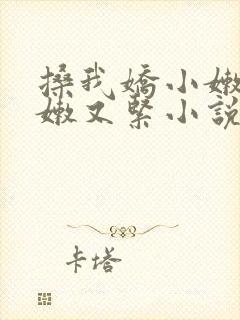 搡我嬌小嫩
嫩又緊小說
卡塔